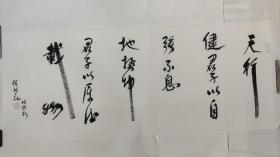 天行
健君子以自
强不息
地势坤
君子以厚德
載物